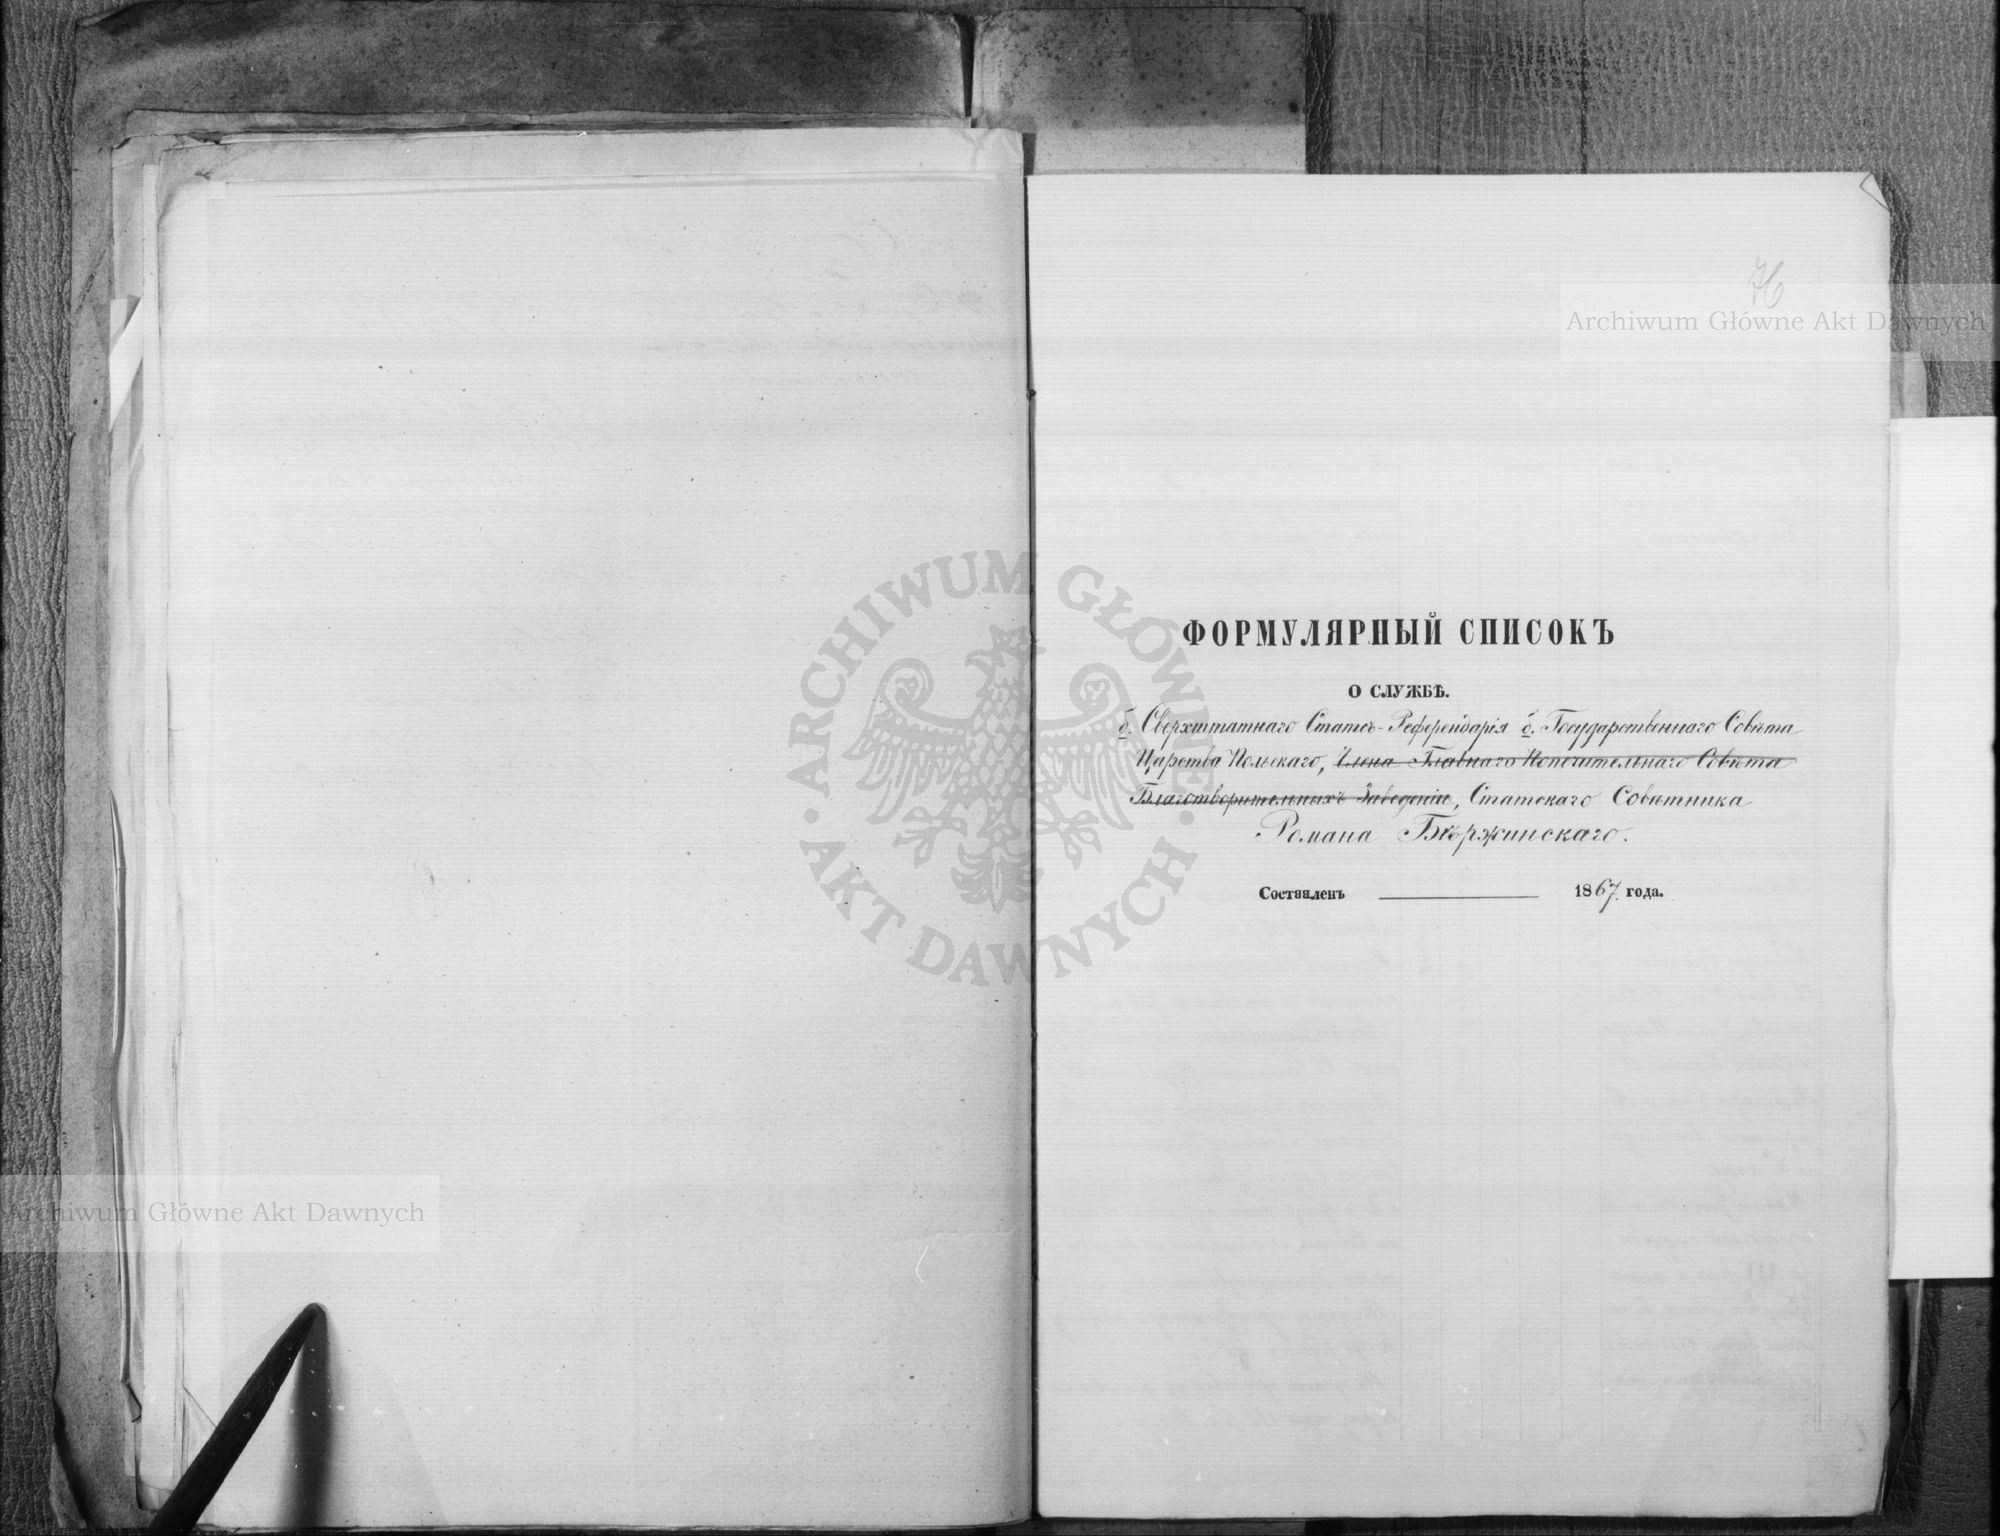 76
Archiwum Główne Akt Dawnych
ФОРМУЛЯРНЫЙ СПИСОКЪ
О СЛУЖБѢ.
б. Сверхштатнаго Статсъ-Референдарія б. Государственнаго Совѣта
Царства Польскаго, Члена Главнаго Попечительнаго Совѣта
Благотворительныхъ Заведеній, Статскаго Совѣтника
Романа Бѣржинскаго.
Составленъ 1867 года.
ARCHIWUM GŁÓWNE
AKT DAWNYCH
Archiwum Główne Akt Dawnych